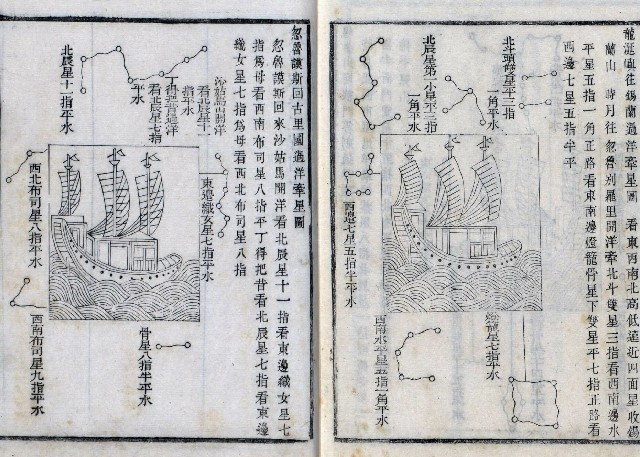 龍涎嶼往錫蘭過洋牽星圖 看東西南北高低遠近四面星收錫
蘭山 時月往忽魯別羅里開洋牽北斗雙星三指看西南邊水
平星五指一角正路看東南邊燈籠骨星下雙星平七指正路看
西邊七星五指半平
北斗頭雙星平三指
一角平水
北辰星第一小星平三指
一角平水
西邊七星五指半平水
燈籠星七指平水
西南水平星五指一角平水
忽魯謨斯回古里國過洋牽星圖
忽魯謨斯回來沙姑馬開洋看北辰星十一指看東邊織女星七
指為母看西南布司星八指平丁得把昔看北辰星七指看東邊
織女星七指為母看西北布司星八指
沙姑馬山開洋
看北辰星十一
指平水
丁得把昔過洋
看北辰星七指
平水
北辰星十一指平水
東邊織女星七指平水
西北布司星八指平水
骨星八指半平水
西南布司星九指平水